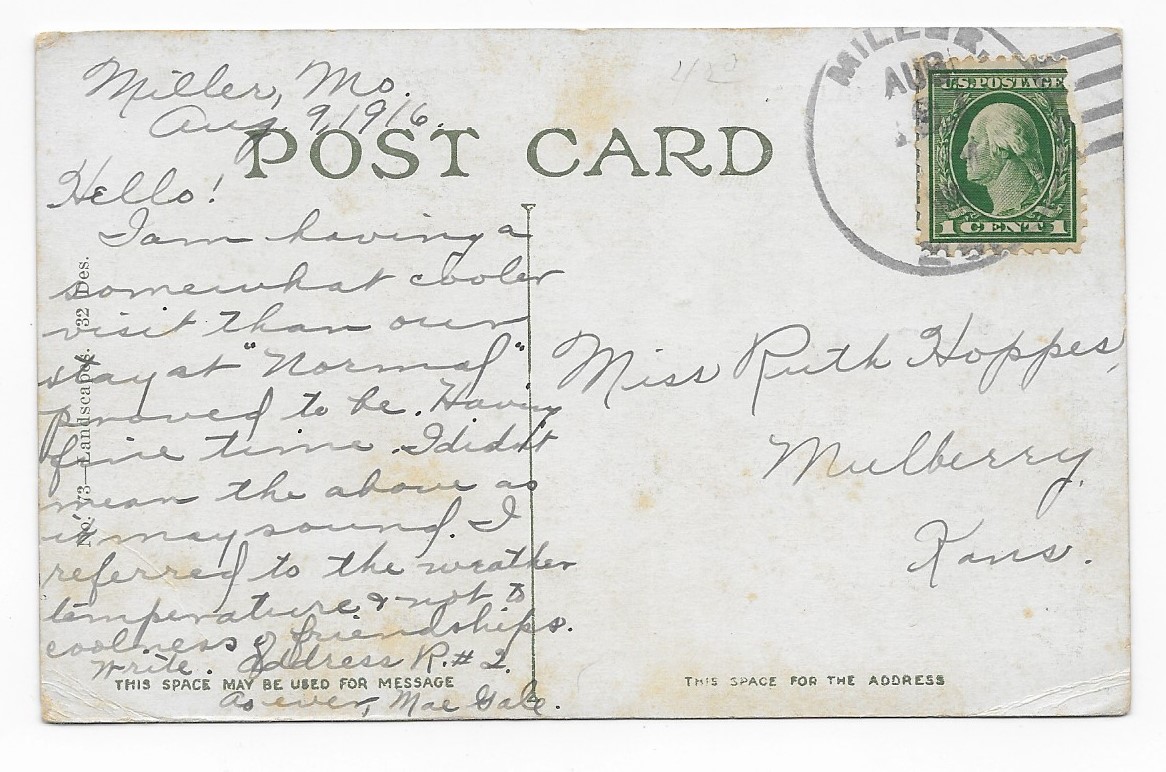 Miller, Mo.
Aug 9, 1916.
POST CARD
Hello!
I am having a
somewhat cooler
visit than our
stay at "Normal"
proved to be. Having
fine time. I didn't
mean the above as
it may sound. I
referred to the weather
temperature & not to
coolness of friendships.
Write. Address R. # 2.
As ever, Mae Gale.
THIS SPACE MAY BE USED FOR MESSAGE
No. 73—Landscapes. 32 Des.
MILLER,
AUG
U.S. POSTAGE
1 CENT 1
Miss Ruth Hoppes,
Mulberry,
Kans.
THIS SPACE FOR THE ADDRESS